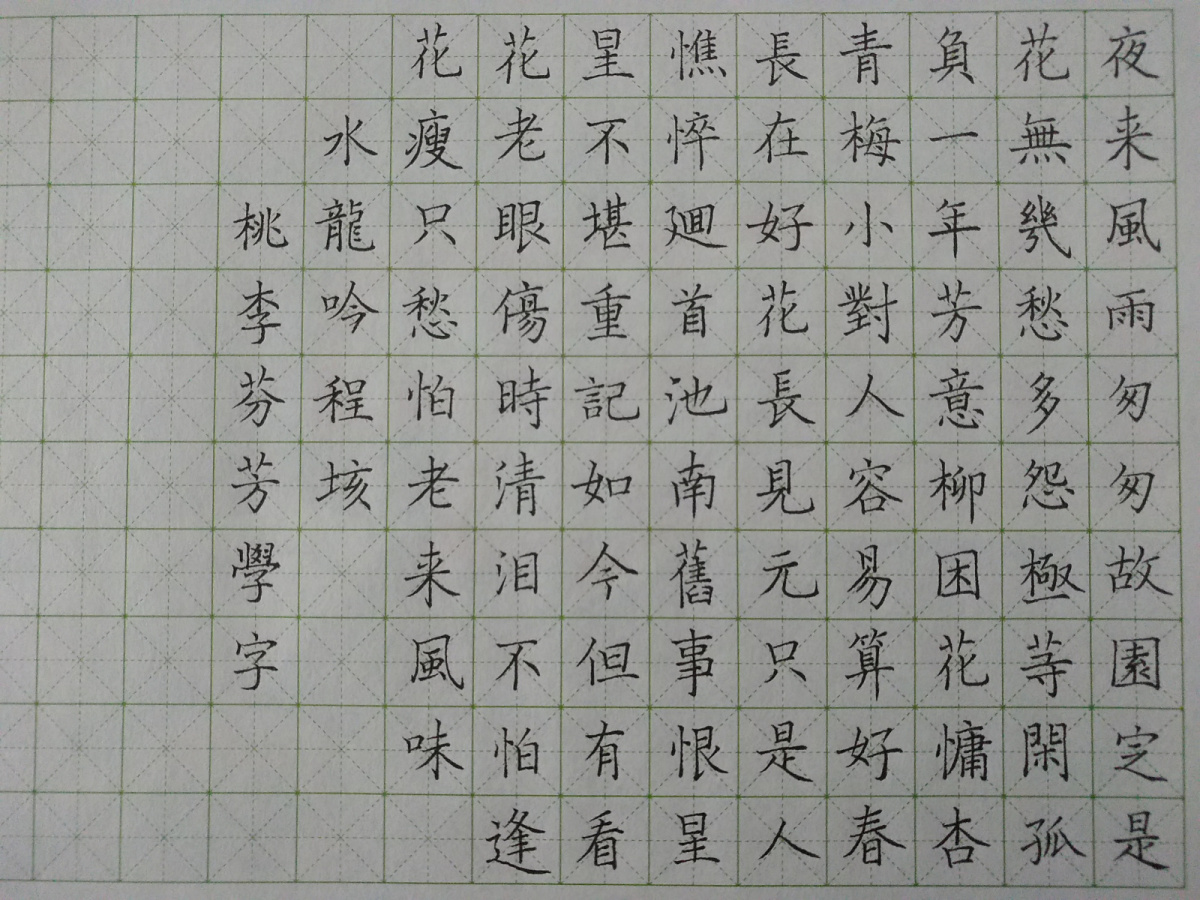 夜来風雨匆匆故園定是
花無幾愁多怨極等閑孤
負一年芳意柳困花慵杏
青梅小對人容易算好春
長在好花長見元只是人
憔悴廻首池南舊事恨星
星不堪重記如今但有看
花老眼傷時清泪不怕逢
花瘦只愁怕老来風味
水龍吟程垓
桃李芬芳學字